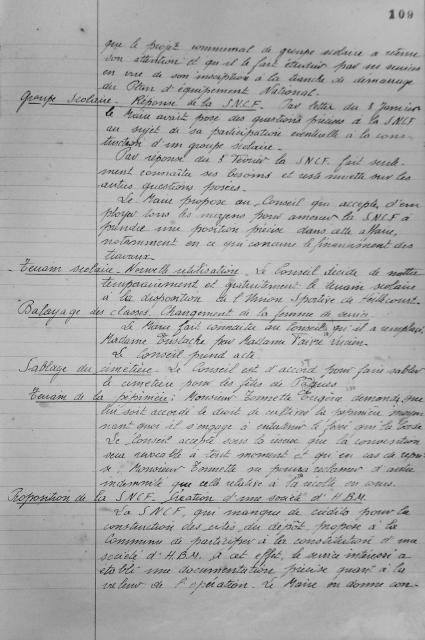 109
que le projet communal de groupe scolaire a retenu
son attention et qu'il le fait étudier par ses services
en vue de son inscription à la tranche de démarrage
du Plan d'équipement National.
Groupe Scolaire - Réponse de la S.N.C.F. Par lettre du 8 Janvier
le Maire avait posé des questions précises à la S.N.C.F
au sujet de sa participation éventuelle à la cons-
truction d'un groupe scolaire.
Par réponse du 5 Février la S.N.C.F. fait seule-
ment connaître ses besoins et reste muette sur les
autres questions posées.
Le Maire propose au Conseil qui accepte, d'em
ployer tous les moyens pour amener la S.N.C.F à
prendre une position précise dans cette affaire,
notamment en ce qui concerne le financement des
travaux.
Terrain scolaire - Nouvelle utilisation. Le Conseil décide de mettre
temporairement et gratuitement le terrain scolaire
à la disposition de l'Union Sportive de
Balayage des classes. Changement de la femme de service
Le Maire fait connaître au Conseil qu'il a remplacé
Madame Eustache par Madame Faivre
Le Conseil prend acte.
Sablage du cimetière - Le Conseil est d'accord pour faire sabler
le cimetière pour les fêtes de Pâques
Terrain de la pépinière: Monsieur Tonnette Eugène demande que
lui soit accordé le droit de cultiver la pépinière moyen
nant quoi il s'engage à entretenir le fossé qui la borde
Le Conseil accepte sous la réserve que la convention
sera révocable à tout moment et qu'en cas de repri
se, Monsieur Tonnette ne pourra réclamer d'autre
indemnité que celle relative à la récolte en cours.
Proposition de la S.N.C.F. Création d'une société d'H.B.M.
La S.N.C.F, qui manque de crédits pour la
construction des cités du dépôt, propose à la
Commune de participer à la constitution d'une
société d'H.B.M. à cet effet, le service intéressé a
établi une documentation précise quant à la
valeur de l'opération. Le Maire en donne con-